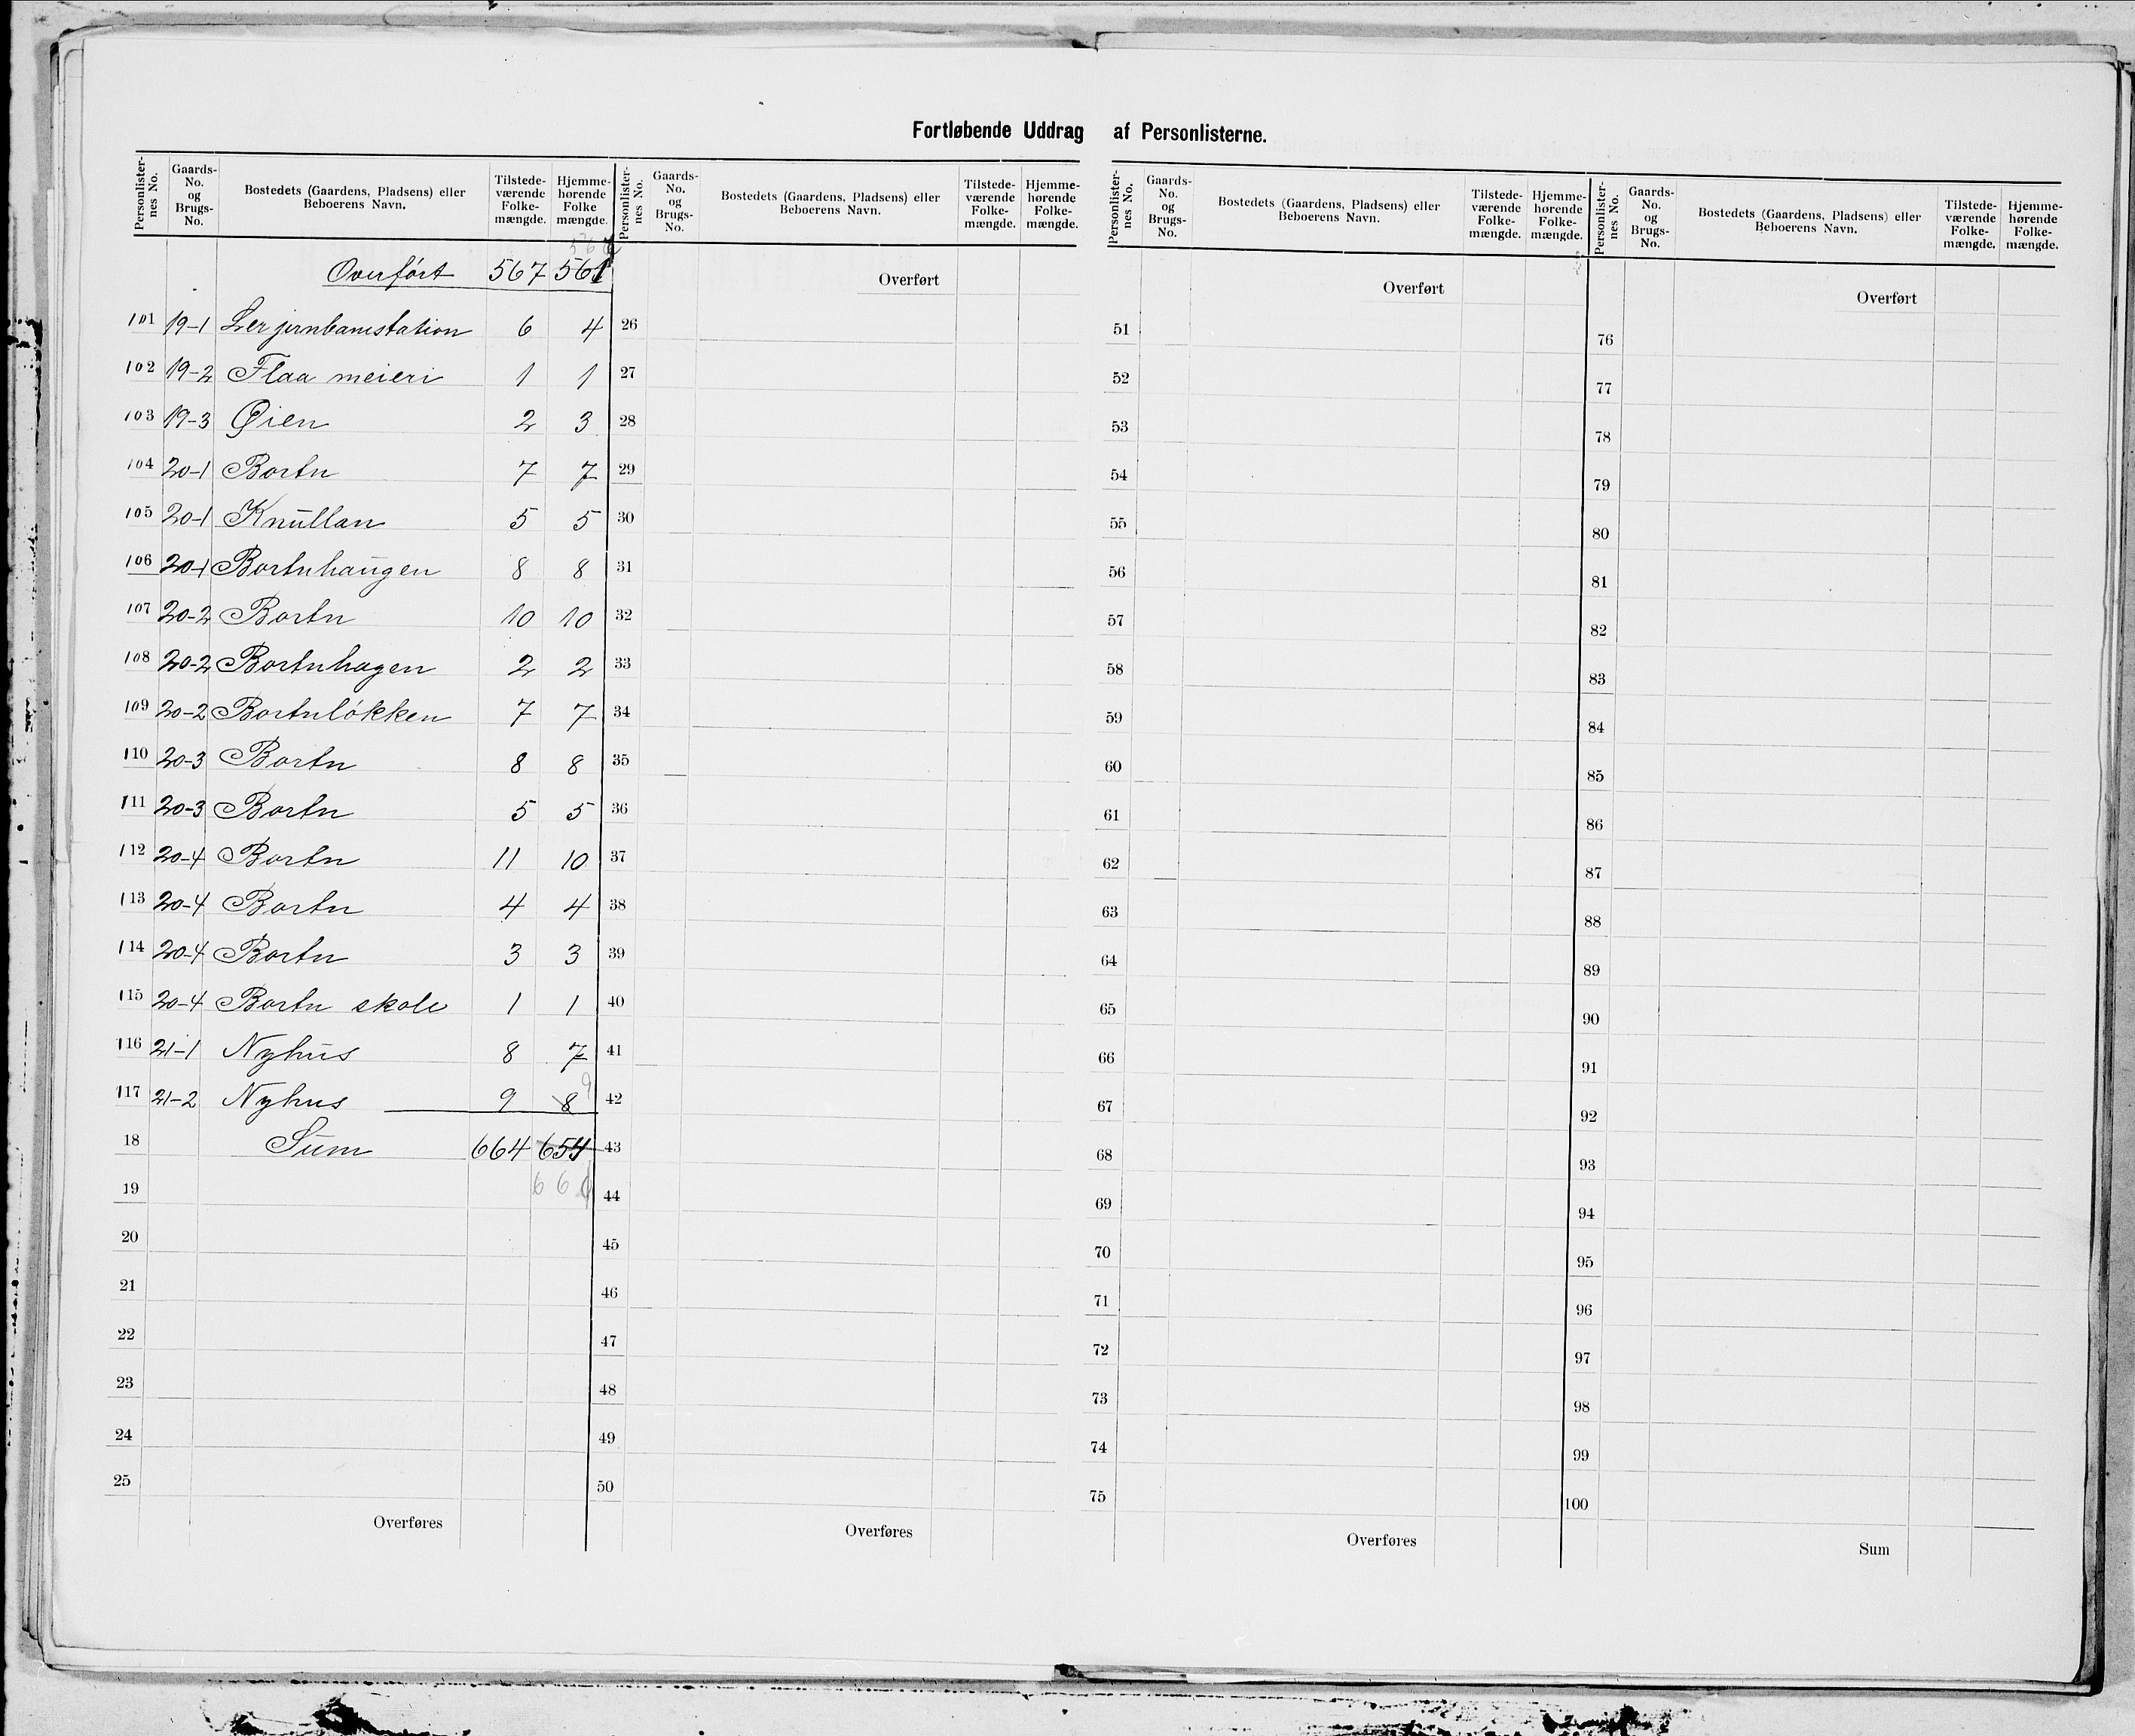 Fortløbende Uddrag af Personlisterne.
Personlister-nes No. Gaards-No. og Brugs-No. Bostedets (Gaardens, Pladsens) eller Beboerens Navn. Tilstede-værende Folke-mængde. Hjemme-hørende Folke mængde.
Overført 567 561
101 19-1 Ler jernbanestation 6 4
102 19-2 Flaa meieri 1 1
103 19-3 Øien 2 3
104 20-1 Bortn 7 7
105 20-1 Knullan 5 5
106 20-1 Bortnhaugen 8 8
107 20-2 Bortn 10 10
108 20-2 Bortnhagen 2 2
109 20-2 Bortnløkken 7 7
110 20-3 Bortn 8 8
111 20-3 Bortn 5 5
112 20-4 Bortn 11 10
113 20-4 Bortn 4 4
114 20-4 Bortn 3 3
115 20-4 Bortn skole 1 1
116 21-1 Nyhus 8 7
9
117 21-2 Nyhus 9 8
18 Sum 664 654
19
20
21
22
23
24
25
Overføres
Personlister-nes No. Gaards-No. og Brugs-No. Bostedets (Gaardens, Pladsens) eller Beboerens Navn. Tilstede-værende Folke-mængde. Hjemme-hørende Folke-mængde.
Overført
26
27
28
29
30
31
32
33
34
35
36
37
38
39
40
41
42
43
44
45
46
47
48
49
50
Overføres
Personlister-nes No. Gaards-No. og Brugs-No. Bostedets (Gaardens, Pladsens) eller Beboerens Navn. Tilstede-værende Folke-mængde. Hjemme-hørende Folke-mængde.
Overført
51
52
53
54
55
56
57
58
59
60
61
62
63
64
65
66
67
68
69
70
71
72
73
74
75
Overføres
Personlister-nes No. Gaards-No. og Brugs-No. Bostedets (Gaardens, Pladsens) eller Beboerens Navn. Tilstede-værende Folke-mængde. Hjemme-hørende Folke-mængde.
Overført
76
77
78
79
80
81
82
83
84
85
86
87
88
89
90
91
92
93
94
95
96
97
98
99
100
Sum